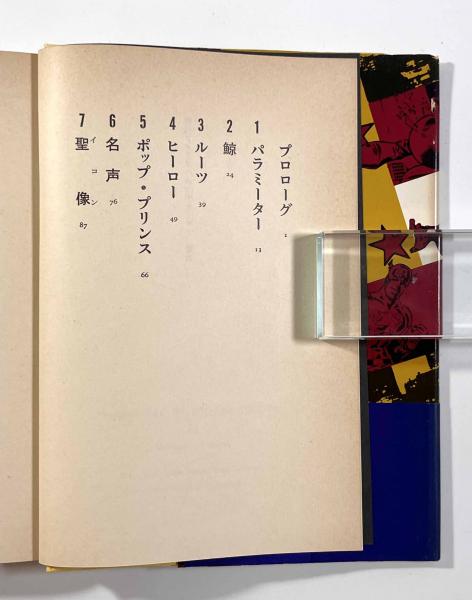 プロローグ 1
1 パラミーター 13
2 鯨 24
3 ルーツ 39
4 ヒーロー 49
5 ポップ・プリンス 66
6 名声 76
7 聖像 イコン 87